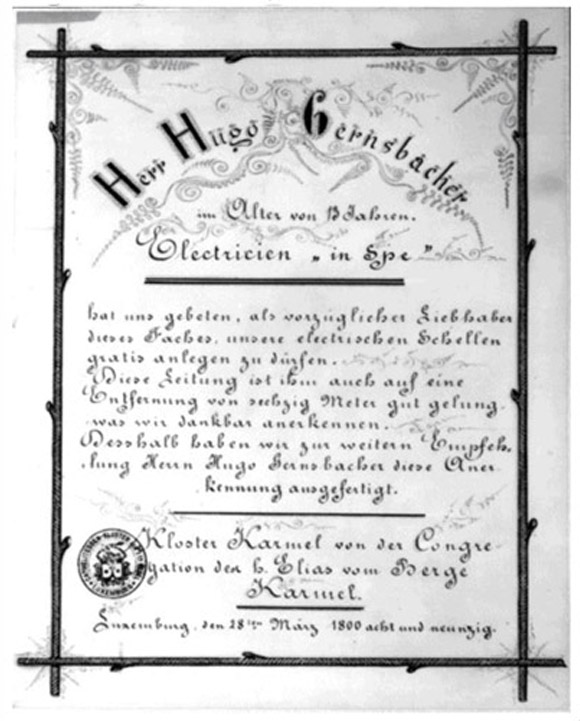 Herr Hugo Gernsbacher
im Alter von 13 Jahren.
Electricien „in Spe"
hat uns gebeten, als vorzüglicher Liebhaber
dieses Faches, unsere electrischen Schellen
gratis anlegen zu dürfen.
Diese Leitung ist ihm auch auf eine
Entfernung von sechzig Meter gut gelung.
was wir dankbar anerkennen.
Desshalb haben wir zur weitern Empfeh,
lung Herrn Hugo Gernsbacher diese Aner
kennung ausgefertigt.
Kloster Karmel von der Congre
gation des h. Elias vom Berge
Karmel.
Luxemburg, den 28ten März 1800 acht und neunzig.